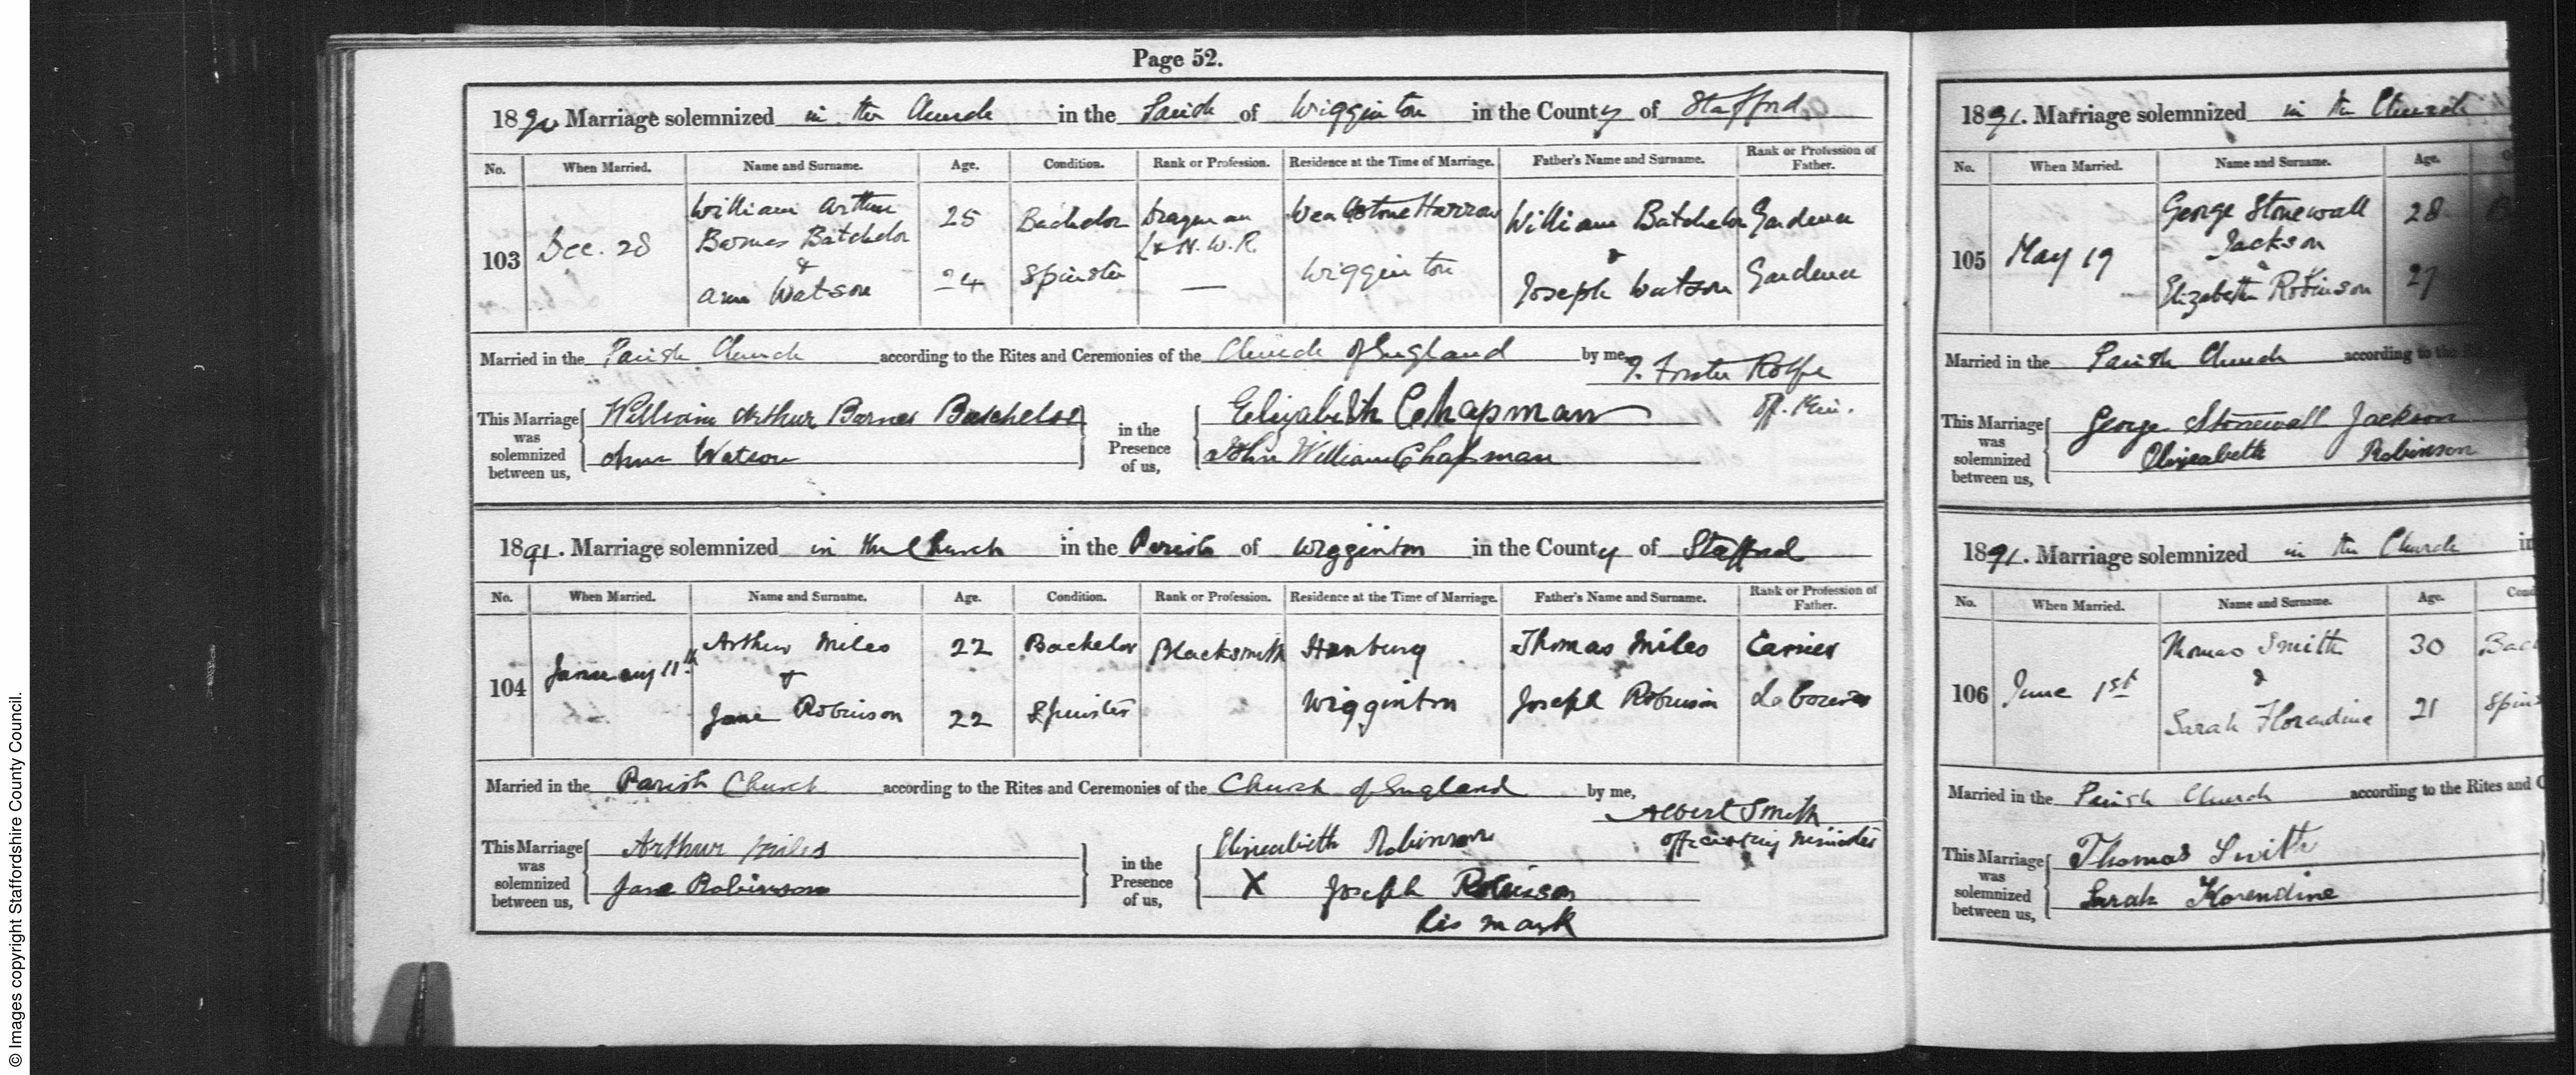 Page 52.
1890 Marriage solemnized in the Church in the Parish of Wigginton in the County of Stafford
No. When Married. Name and Surname. Age. Condition. Rank or Profession. Residence at the Time of Marriage. Father's Name and Surname. Rank or Profession of Father.
103 Dec. 28 William Arthur Barnes Batchelor 25 Bachelor Drayman L & N. W. R. Wealdstone Harrow William Batchelor Gardener
&
Ann Watson 24 Spinster — Wigginton Joseph Watson Gardener
Married in the Parish Church according to the Rites and Ceremonies of the Church of England by me, Foster Rolfe
Off. Min.
This Marriage was solemnized between us, William Arthur Barnes Batchelor
Ann Watson
in the Presence of us, Elizabeth Chapman
John William Chapman
1891. Marriage solemnized in the Church in the Parish of Wigginton in the County of Stafford
No. When Married. Name and Surname. Age. Condition. Rank or Profession. Residence at the Time of Marriage. Father's Name and Surname. Rank or Profession of Father.
104 January 11th Arthur Miles 22 Bachelor Blacksmith Hanbury Thomas Miles Carrier
&
Jane Robinson 22 Spinster Wigginton Joseph Robinson Labourer
Married in the Parish Church according to the Rites and Ceremonies of the Church of England by me, Albert Smith
officiating minister
This Marriage was solemnized between us, Arthur Miles
Jane Robinson
in the Presence of us, Elizabeth Robinson
X Joseph Robinson
his mark
1891. Marriage solemnized in the Church
No. When Married. Name and Surname. Age.
105 May 19 George Stonewall Jackson 28
&
Elizabeth Robinson 27
Married in the Parish Church according to the
This Marriage was solemnized between us, George Stonewall Jackson
Elizabeth Robinson
1891. Marriage solemnized in the Church in
No. When Married. Name and Surname. Age. Cond
106 June 1st Thomas Smith 30 Bac
&
Sarah Florendine 21 Spins
Married in the Parish Church according to the Rites and C
This Marriage was solemnized between us, Thomas Smith
Sarah Florendine
© Images copyright Staffordshire County Council.